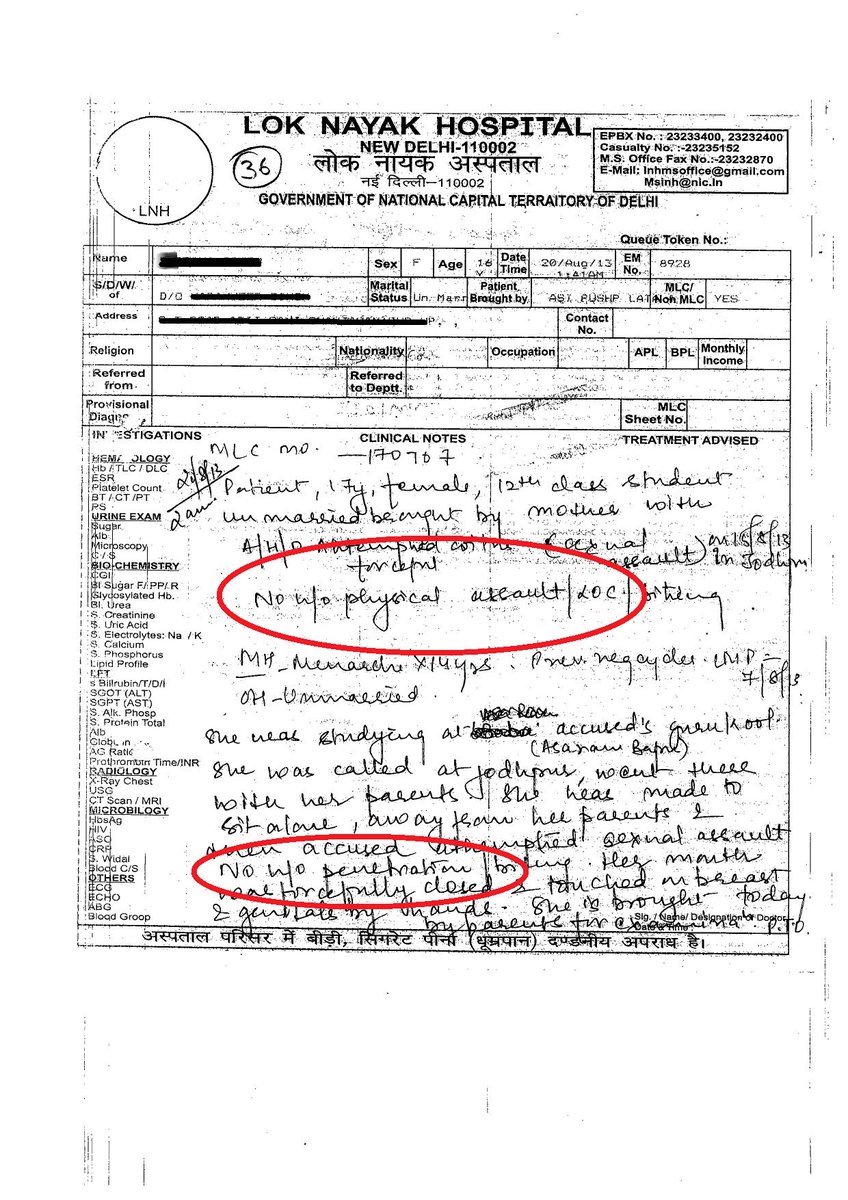 LOK NAYAK HOSPITAL
NEW DELHI-110002
लोक नायक अस्पताल
नई दिल्ली-110002
GOVERNMENT OF NATIONAL CAPITAL TERRAITORY OF DELHI
36
LNH
EPBX No. : 23233400, 23232400
Casualty No. :-23235152
M.S. Office Fax No.:-23232870
E-Mail; lnhmsoffice@gmail.com
Msinh@nic.in
Queue Token No.:
Name Sex F Age 16 Y Date Time 20/Aug/13 1:41AM EM No. 8928
S/D/W/ of D/O Marital Status Un. Marr Patient Brought by ASI PUSHP LATA MLC/ Non MLC YES
Address Contact No.
Religion Nationality Occupation APL BPL Monthly Income
Referred from Referred to Deptt.
Provisional MLC Sheet No.
CLINICAL NOTES TREATMENT ADVISED
MLC no. — 170707
2am
Patient, 17y, female, 12th class student
unmarried brought by mother with
A/H/O Attempted (sexual assault) on 15/8/13 in Jodhpur
No h/o physical assault / LOC / biting
MH - Menarche x 14 yrs. Prev. reg cycles. LMP = 7/8/13
OH - Unmarried.
She was studying at accused's gurukool.
(Asaram Bapu)
She was called at jodhpur, went there
with her parents. She was made to
sit alone, away from her parents &
then accused attempted sexual assault
No h/o penetration / biting. Her mouth
was forcefully closed & touched on breast
& genitals by hands. She is brought today
by parents for P.T.O.
HEMATOLOGY
Hb / TLC / DLC
ESR
Platelet Count
BT / CT / PT
PS
URINE EXAM
Sugar
Alb
Microscopy
C / S
BIO-CHEMISTRY
CGI
Bl Sugar F/ PP/ R
Glycosylated Hb.
Bl. Urea
S. Creatinine
S. Uric Acid
S. Electrolytes: Na / K
S. Calcium
S. Phosphorus
Lipid Profile
LFT
s Billrubin/T/D/I
SGOT (ALT)
SGPT (AST)
S. Alk. Phosp
S. Protein Total
Alb
AG Ratio
Prothrombin Time/INR
RADIOLOGY
X-Ray Chest
USG
CT Scan / MRI
MICROBILOGY
HbsAg
HIV
ASO
CRP
S. Widal
Blood C/S
OTHERS
ECG
ECHO
ABG
Blood Group
Sig. / Name/ Designation of Doctor
Date & Time
अस्पताल परिसर में बीड़ी, सिगरेट पीना (धूम्रपान) दण्डनीय अपराध है।